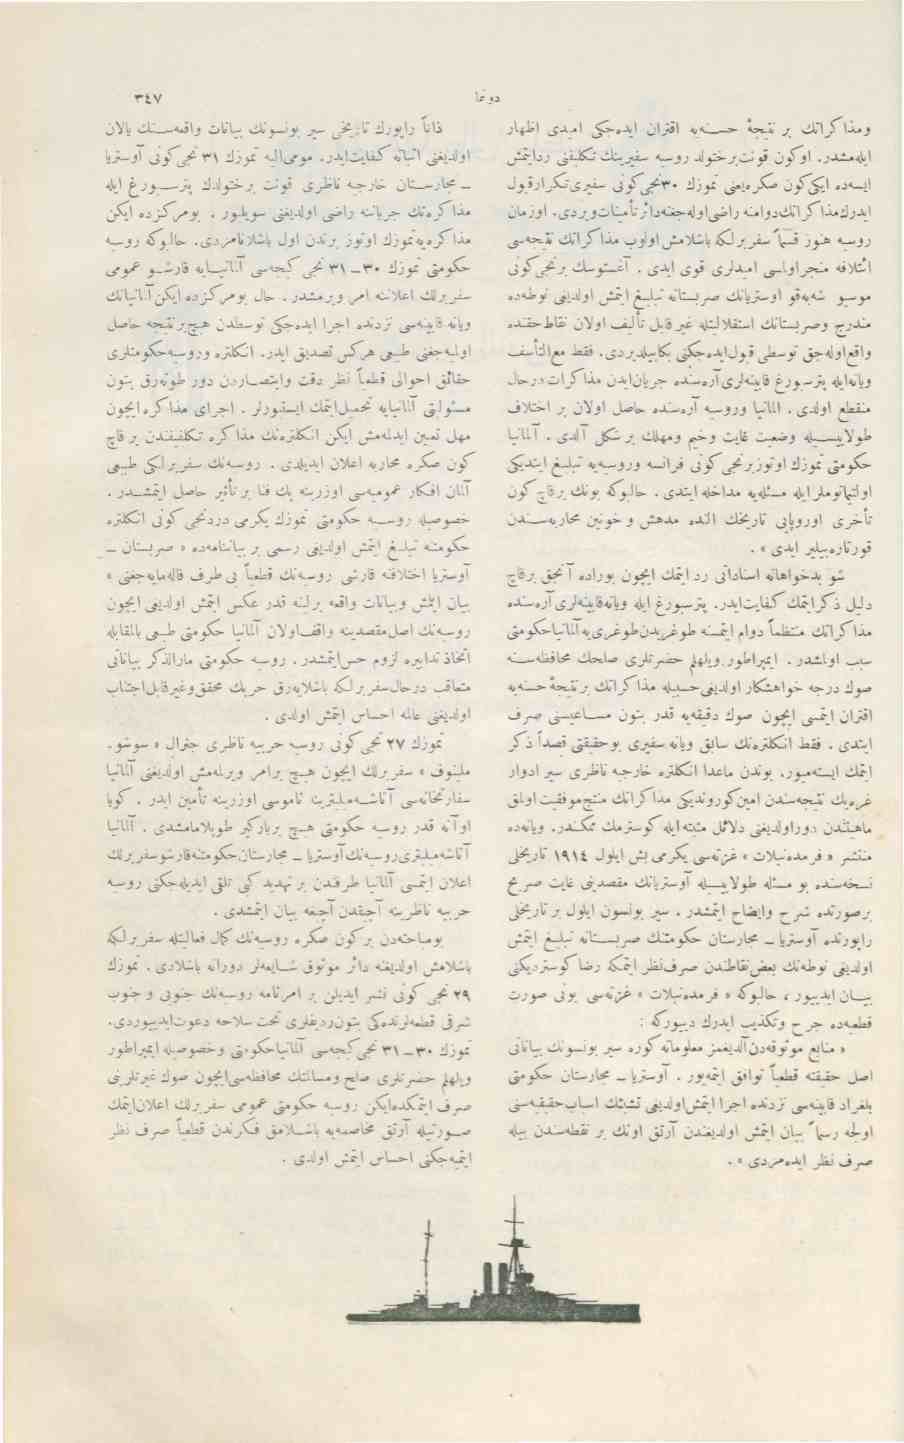 دوننما
٣٤٧
ومذاكراتك بر نتيجهٔ حسنه‌يه اقتران ايده‌جكی اميدی اظهار
ايله‌مشدر. اوكون قونت برختولد روسيه سفيرينك تكليفنی ردايتمش
ايسه‌ده ايكی كون صكره يعنی تموزك ٣٠نجی كونی سفيری تكرار قبول
ايدرك مذاكراتك دوامنه راضی اوله‌جغنه دائر تأمينات ويردی. اوزمان
روسيه هنوز قسماً سفربرلكه باشلامش اولوب مذاكراتك نتيجه‌سی
ائتلافه منجر اولسی اميدلری قوی ايدی. آغستوسك برنجی كونی
موسيو شه‌به‌قو اوستريانك صربستانه تبليغ ايتمش اولديغی نوطه‌ده
مندرج وصربستانك استقلاليتله غير قابل تأليف اولان نقاط حقنده
واقع اوله‌جق توسطی قبول ايده‌جكنی بكا بيلديردی. فقط مع‌التأسف
ويانه ايله پترسبورغ قابينه‌لری آره‌سنده جريان ايدن مذاكرات درحال
منقطع اولدی. المانيا وروسيه آره‌سنده حاصل اولان بر اختلاف
طولاييسيله وضعيت غايت وخيم ومهلك بر شكل آلدی. آلمانيا
حكومتی تموزك اوتوز برنجی كونی فرانسه وروسيه‌يه تبليغ ايتديكی
اولتيماتوملر ايله مسئله‌يه مداخله ايتدی. حالبوكه بونك بر قاچ كون
تأخری اوروپايی تاريخك الده مدهش و خونين محاربه‌سندن
قورتاره‌بيلير ايدی».
شو بدخواهانه اسناداتی رد ايتمك ايچون بوراده آنجق برقاچ
دليل ذكر ايتمك كفايت ايدر. پترسبورغ ايله ويانه قابينه‌لری آره‌سنده
مذاكراتك منتظماً دوام ايتمسنه طوغريدن طوغری‌يه آلمانيا حكومتی
سبب اولمشدر. ايمپراطور ويلهلم حضرتلری صلحك محافظه‌سنه
صوك درجه خواهشكار اولديغی حسبيله مذاكراتك بر نتيجهٔ حسنه‌يه
اقتران ايتمسی ايچون صوك دقيقه‌يه قدر بتون مساعيسنی صرف
ايتدی. فقط انكلتره‌نك سابق ويانه سفيری بو حقيقتی قصداً ذكر
ايتمك ايسته‌ميور. بوندن ماعدا انكلتره خارجيه ناظری سير ادوار
غره‌يك نتيجه‌سندن امين كوروندیكی مذاكراتك منتج موفقيت اولمق
ماهيتندن دور اولديغنی دلائل مثبته ايله كوسترمك ممكندر. ويانه‌ده
منتشر «فرمده‌نبلات» غزته‌سی يكرمی بش ايلول ١٩١٤ تاريخلی
نسخه‌سنده بو مسئله طولاييسيله آوستريانك مقصدينی غايت صريح
برصورتده شرح وايضاح ايتمشدر. سير بونسون ايلول بر تاريخلی
راپورنده آوستريا – مجارستان حكومتنك صربستانه تبليغ ايتمش
اولديغی نوطه‌نك بعض نقاطندن صرف نظر ايتمكه رضا كوسترديكنی
بيان ايدييور، حالبوكه «فرمده‌نبلات» غزته‌سی بونی صورت
قطعيه‌ده جرح وتكذيب ايدرك دييوركه :
«منابع موثوقه‌دن آلديغمز معلوماته كوره سير بونسونك بياناتی
اصل حقيقته قطعياً توافق ايتمه‌يور. آوستريا – مجارستان حكومتی
بلغراد قابينه‌سی نزدنده اجرا ايتمش اولديغی تشبثك اسباب حقيقيه‌سنی
اولجه رسماً بيان ايتمش اولديغندن آرتق اونك بر نقطه‌سندن بيله
صرف نظر ايده‌مزدی».
ذاتاً راپورك تاريخی سير بونسونك بيانات واقعه‌سنك يالان
اولديغنی اثباته كفايت ايدر. مومی‌اليه تموزك ٣١ نجی كونی آوستريا
– مجارستان خارجيه ناظری قونت برختولدك پترسبورغ ايله
مذاكره‌نك جرياننه راضی اولديغنی سويليور. بومركزده ايكن
مذاكره‌يه تموزك اوتوز برندن اول باشلانامزدی. حالبوكه روسيه
حكومتی تموزك ٣٠–٣١ نجی كيجه‌سی آلمانيايه قارشو عمومی
سفربرلك اعلاننه امر ويرمشدر. حال بومركزده ايكن آلمانيانك
ويانه قابينه‌سی نزدنده اجرا ايده‌جكی توسطدن هيچ بر نتيجه حاصل
اولميه‌جغنی طبيعی هركس تصديق ايدر. انكلتره وروسيه حكومتلری
حقائق احوالی قطعياً نظر دقت وابتصاردن دور طوته‌رق بتون
مسئوليتی آلمانيايه تحميل ايتمك ايستيورلر. اجرای مذاكره ايچون
مهل تعيين ايدلمه‌مش ايكن انكلتره‌نك مذاكره تكليفيندن بر قاچ
كون صكره محاربه اعلان ايديلدی. روسيه‌نك سفربرلكی طبيعی
آلمان افكار عموميه‌سی اوزرينه پك فنا بر تأثير حاصل ايتمشدر.
خصوصيله روسيه حكومتی تموزك يكرمی دردنجی كونی انكلتره
حكومتنه تبليغ ايتمش اولديغی رسمی بر بياننامه‌ده «صربستان –
آوستريا اختلافنه قارشی روسيه‌نك قطعياً بی طرف قاله‌مايه‌جغنی»
بيان ايتمش وبيانات واقعه برلينه قدر عكس ايتمش اولديغی ايچون
روسيه‌نك اصل مقصدينه واقف اولان آلمانيا حكومتی طبيعی بالمقابله
اتخاذ تدابيره لزوم حس ايتمشدر. روسيه حكومتی مارالذكر بياناتی
متعاقب درحال سفربرلكه باشلايه‌رق حربك محقق وغيرقابل اجتناب
اولديغنی عالمه احساس ايتمش اولدی.
تموزك ٢٧ نجی كونی روسيه حربيه ناظری جنرال «سوشو.
ملينوف» سفربرلك ايچون هيچ برامر ويرلمه‌مش اولديغنی آلمانيا
سفارتخانه‌سی آتاشه‌ميليترينه ناموسی اوزرينه تأمين ايدر. كويا
اوآنه قدر روسيه حكومتی هيچ بربارگير طوپلامامشدی. آلمانيا
آتاشه‌ميليتری روسيه‌نك آوستريا – مجارستان حكومتنه قارشو سفربرلك
اعلان ايتمسی آلمانيا طرفندن بر تهديد كبی تلقی ايديله‌جكنی روسيه
حربيه ناظرينه آچيقدن آچيغه بيان ايتمشدی.
بومباحثه‌دن بركون صكره روسيه‌نك كمال فعاليتله سفربرلكه
باشلامش اولديغنه دائر موثوق شايعه‌لر دورانه باشلادی. تموزك
٢٩ نجی كونی نشر ايديلن بر امرنامه روسيه‌نك جنوبی و جنوب
شرقی قطعه‌لرنده‌كی بتون رديفلری تحت سلاحه دعوت ايدييوردی.
تموزك ٣٠–٣١ نجی كيجه‌سی آلمانيا حكومتی وخصوصيله ايمپراطور
ويلهلم حضرتلری صلح ومسالمتك محافظه‌سی ايچون صوك غيرتلرينی
صرف ايتمكده ايكن روسيه حكومتی عمومی سفربرلك اعلان ايتمك
صورتيله آرتق مخاصمه‌يه باشلامق فكرندن قطعياً صرف نظر
ايتميه‌جكنی احساس ايتمش اولدی.